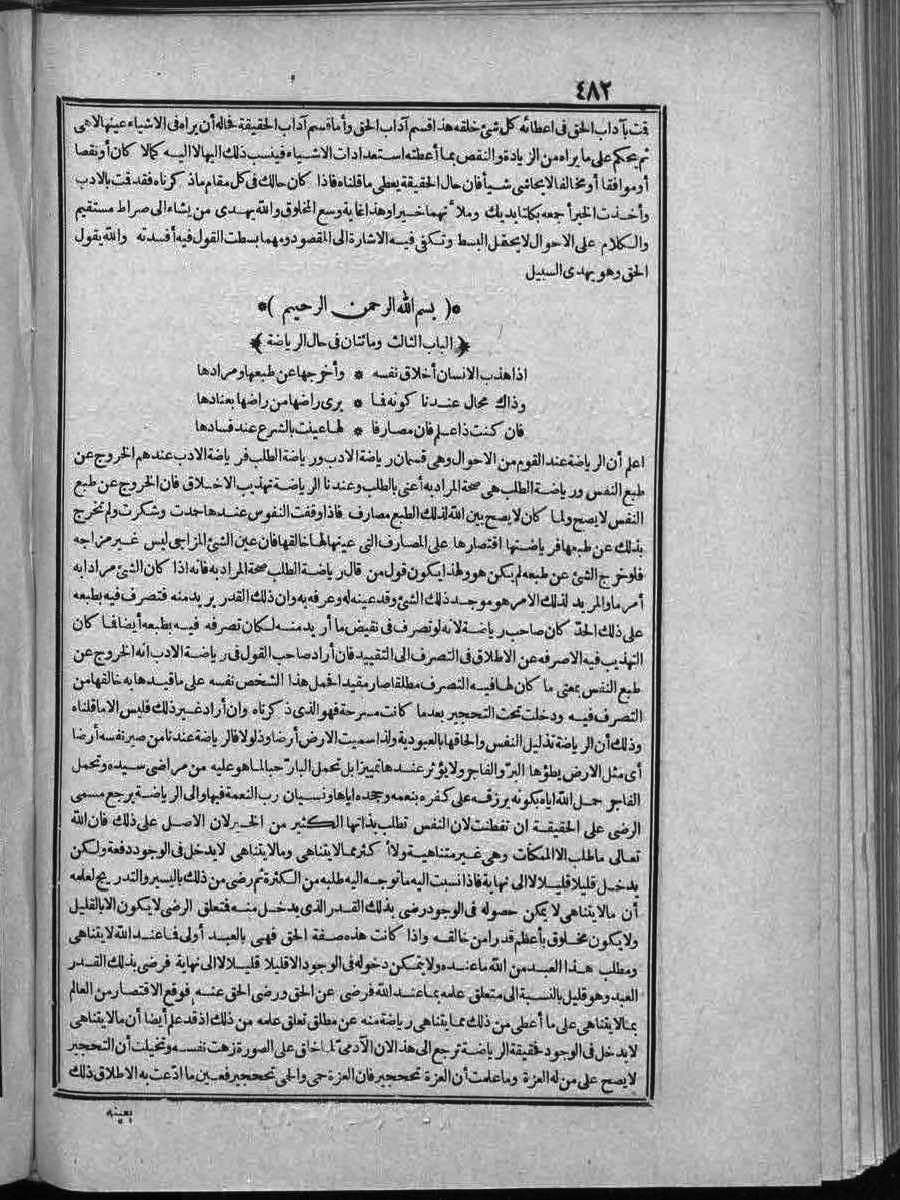 ٤٨٢
قت بآداب الحق فى اعطائه كل شئ خلقه هذا قسم آداب الحق وأما قسم آداب الحقيقة فحاله أن يراه فى الاشياء عينها لا هى
ثم يحكم على ما يراه من الزيادة والنقص بما أعطته استعدادات الاشياء فينسب ذلك اليها لا اليه كمالا كان أو نقصا
أو موافقا أو مخالفا لا يحاشى شيأ فان حال الحقيقة يعطى ما قلناه فاذا كان حالك فى كل مقام ما ذكرناه فقد قت بالادب
وأخذت الخير أجمعه بكلتا يديك وملأتهما خيرا وهذا غاية وسع المخلوق والله يهدى من يشاء الى صراط مستقيم
والكلام على الاحوال لا يحتمل البسط وتكفى فيه الاشارة الى المقصود ومهما بسطت القول فيه أفسدته والله يقول
الحق وهو يهدى السبيل
*( بسم الله الرحمن الرحيم )*
﴿الباب الثالث ومائتان فى حال الرياضة﴾
اذا هذب الانسان أخلاق نفسه * وأخرجها عن طبعها ومرادها
وذاك محال عندنا كونه فما * يرى راضها من راضها بعنادها
فان كنت ذا علم فان مصارفا * لها عينت بالشرع عند فسادها
اعلم أن الرياضة عند القوم من الاحوال وهى قسمان رياضة الادب ورياضة الطلب فرياضة الادب عندهم الخروج عن
طبع النفس ورياضة الطلب هى صحة المراد به أعنى بالطلب وعندنا الرياضة تهذيب الاخلاق فان الخروج عن طبع
النفس لا يصح ولما كان لا يصح بين الله لذلك الطبع مصارف فاذا وقفت النفوس عندها حمدت وشكرت ولم تخرج
بذلك عن طبعها فرياضتها اقتصارها على المصارف التى عينها لها خالقها فان عين الشئ المزاجى ليس غير مزاجه
فلو خرج الشئ عن طبعه لم يكن هو ولهذا يكون قول من قال رياضة الطلب صحة المراد به فانه اذا كان الشئ مرادا به
أمر ما والمريد لذلك الامر هو موجد ذلك الشئ وقد عينه له وعرفه به وان ذلك القدر يريد منه فتصرف فيه بطبعه
على ذلك الحد كان صاحب رياضة لانه لو تصرف فى نقيض ما أريد منه لكان تصرفه فيه بطبعه أيضا فما كان
التهذيب فيه الا صرفه عن الاطلاق فى التصرف الى التقييد فان أراد صاحب القول فى رياضة الادب انه الخروج عن
طبع النفس بمعنى ما كان لها فيه التصرف مطلقا صار مقيدا فحمل هذا الشخص نفسه على ما قيدها به خالقها من
التصرف فيه ودخلت تحت التحجير بعدما كانت مسرحة فهو الذى ذكرناه وان أراد غير ذلك فليس الا ما قلناه
وذلك أن الرياضة تذليل النفس والحاقها بالعبودية ولذا سميت الارض أرضا وذلولا فالرياضة عندنا من صير نفسه أرضا
أى مثل الارض يطؤها البر والفاجر ولا يؤثر عندها تمييزا بل تحمل البار حبا لما هو عليه من مراضى سيده وتحمل
الفاجر حمل الله اياه بكونه يرزقه على كفره بنعمه وجحده اياها ونسيان رب النعمة فيها والى الرياضة يرجع مسمى
الرضى على الحقيقة ان تفطنت لان النفس تطلب بذاتها الكثير من الخير لان الاصل على ذلك فان الله
تعالى ما طلب الا الممكنات وهى غير متناهية ولا أكثر مما لا يتناهى وما لا يتناهى لا يدخل فى الوجود دفعة ولكن
يدخل قليلا قليلا لا الى نهاية فاذا نسبت اليه ما توجه اليه طلبه من الكثرة ثم رضى من ذلك باليسير والتدريج لعلمه
أن ما لا يتناهى لا يمكن حصوله فى الوجود رضى بذلك القدر الذى يدخل منه فتعلق الرضى لا يكون الا بالقليل
ولا يكون مخلوق بأعظم قدرا من خالقه واذا كانت هذه صفة الحق فهى بالعبد أولى فما عند الله لا يتناهى
ومطلب هذا العبد من الله ما عنده ولا يتمكن دخوله فى الوجود الا قليلا قليلا لا الى نهاية فرضى بذلك القدر
العبد وهو قليل بالنسبة الى متعلق علمه بما عند الله فرضى عن الحق ورضى الحق عنه فوقع الاقتصار من العالم
بما لا يتناهى على ما أعطى من ذلك مما يتناهى رياضة منه عن مطلق تعلق علمه من ذلك اذ قد علم أيضا أن ما لا يتناهى
لا يدخل فى الوجود فحقيقة الرياضة ترجع الى هذا لان الآدمى لما خلق على الصورة زهت نفسه وتخيلت أن التحجير
لا يصح على من له العزة وما علمت أن العزة تحجير فان العزة حمى والحمى تحجير فعين ما ادّعت به الاطلاق ذلك
بعينه